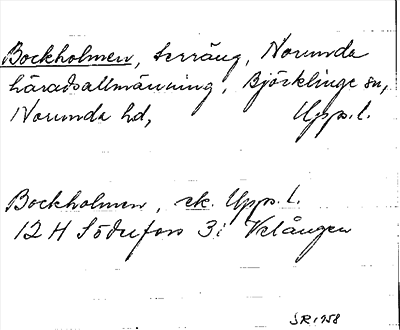 Bockholmen, terräng, Norunda
häradsallmänning, Björklinge sn,
Norunda hd, Upps. l.
Bockholmen, ek. Upps. l.
12 H Söderfors 3i Vidången
SR 1958